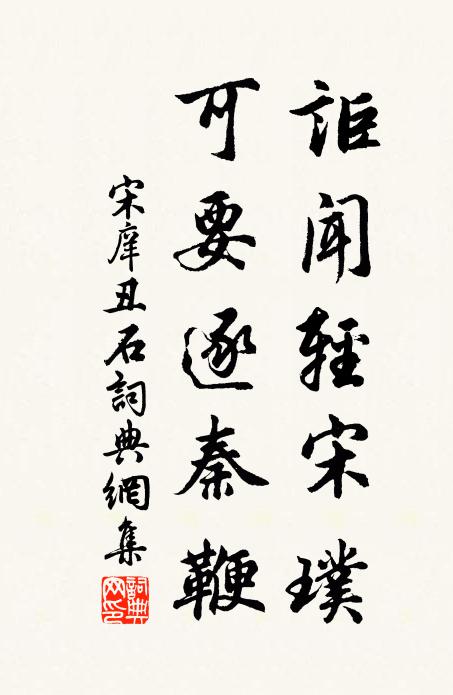 詎聞輕宋璞
可要逐秦鞭
宋庠丑石詞典網集
詞典
网印